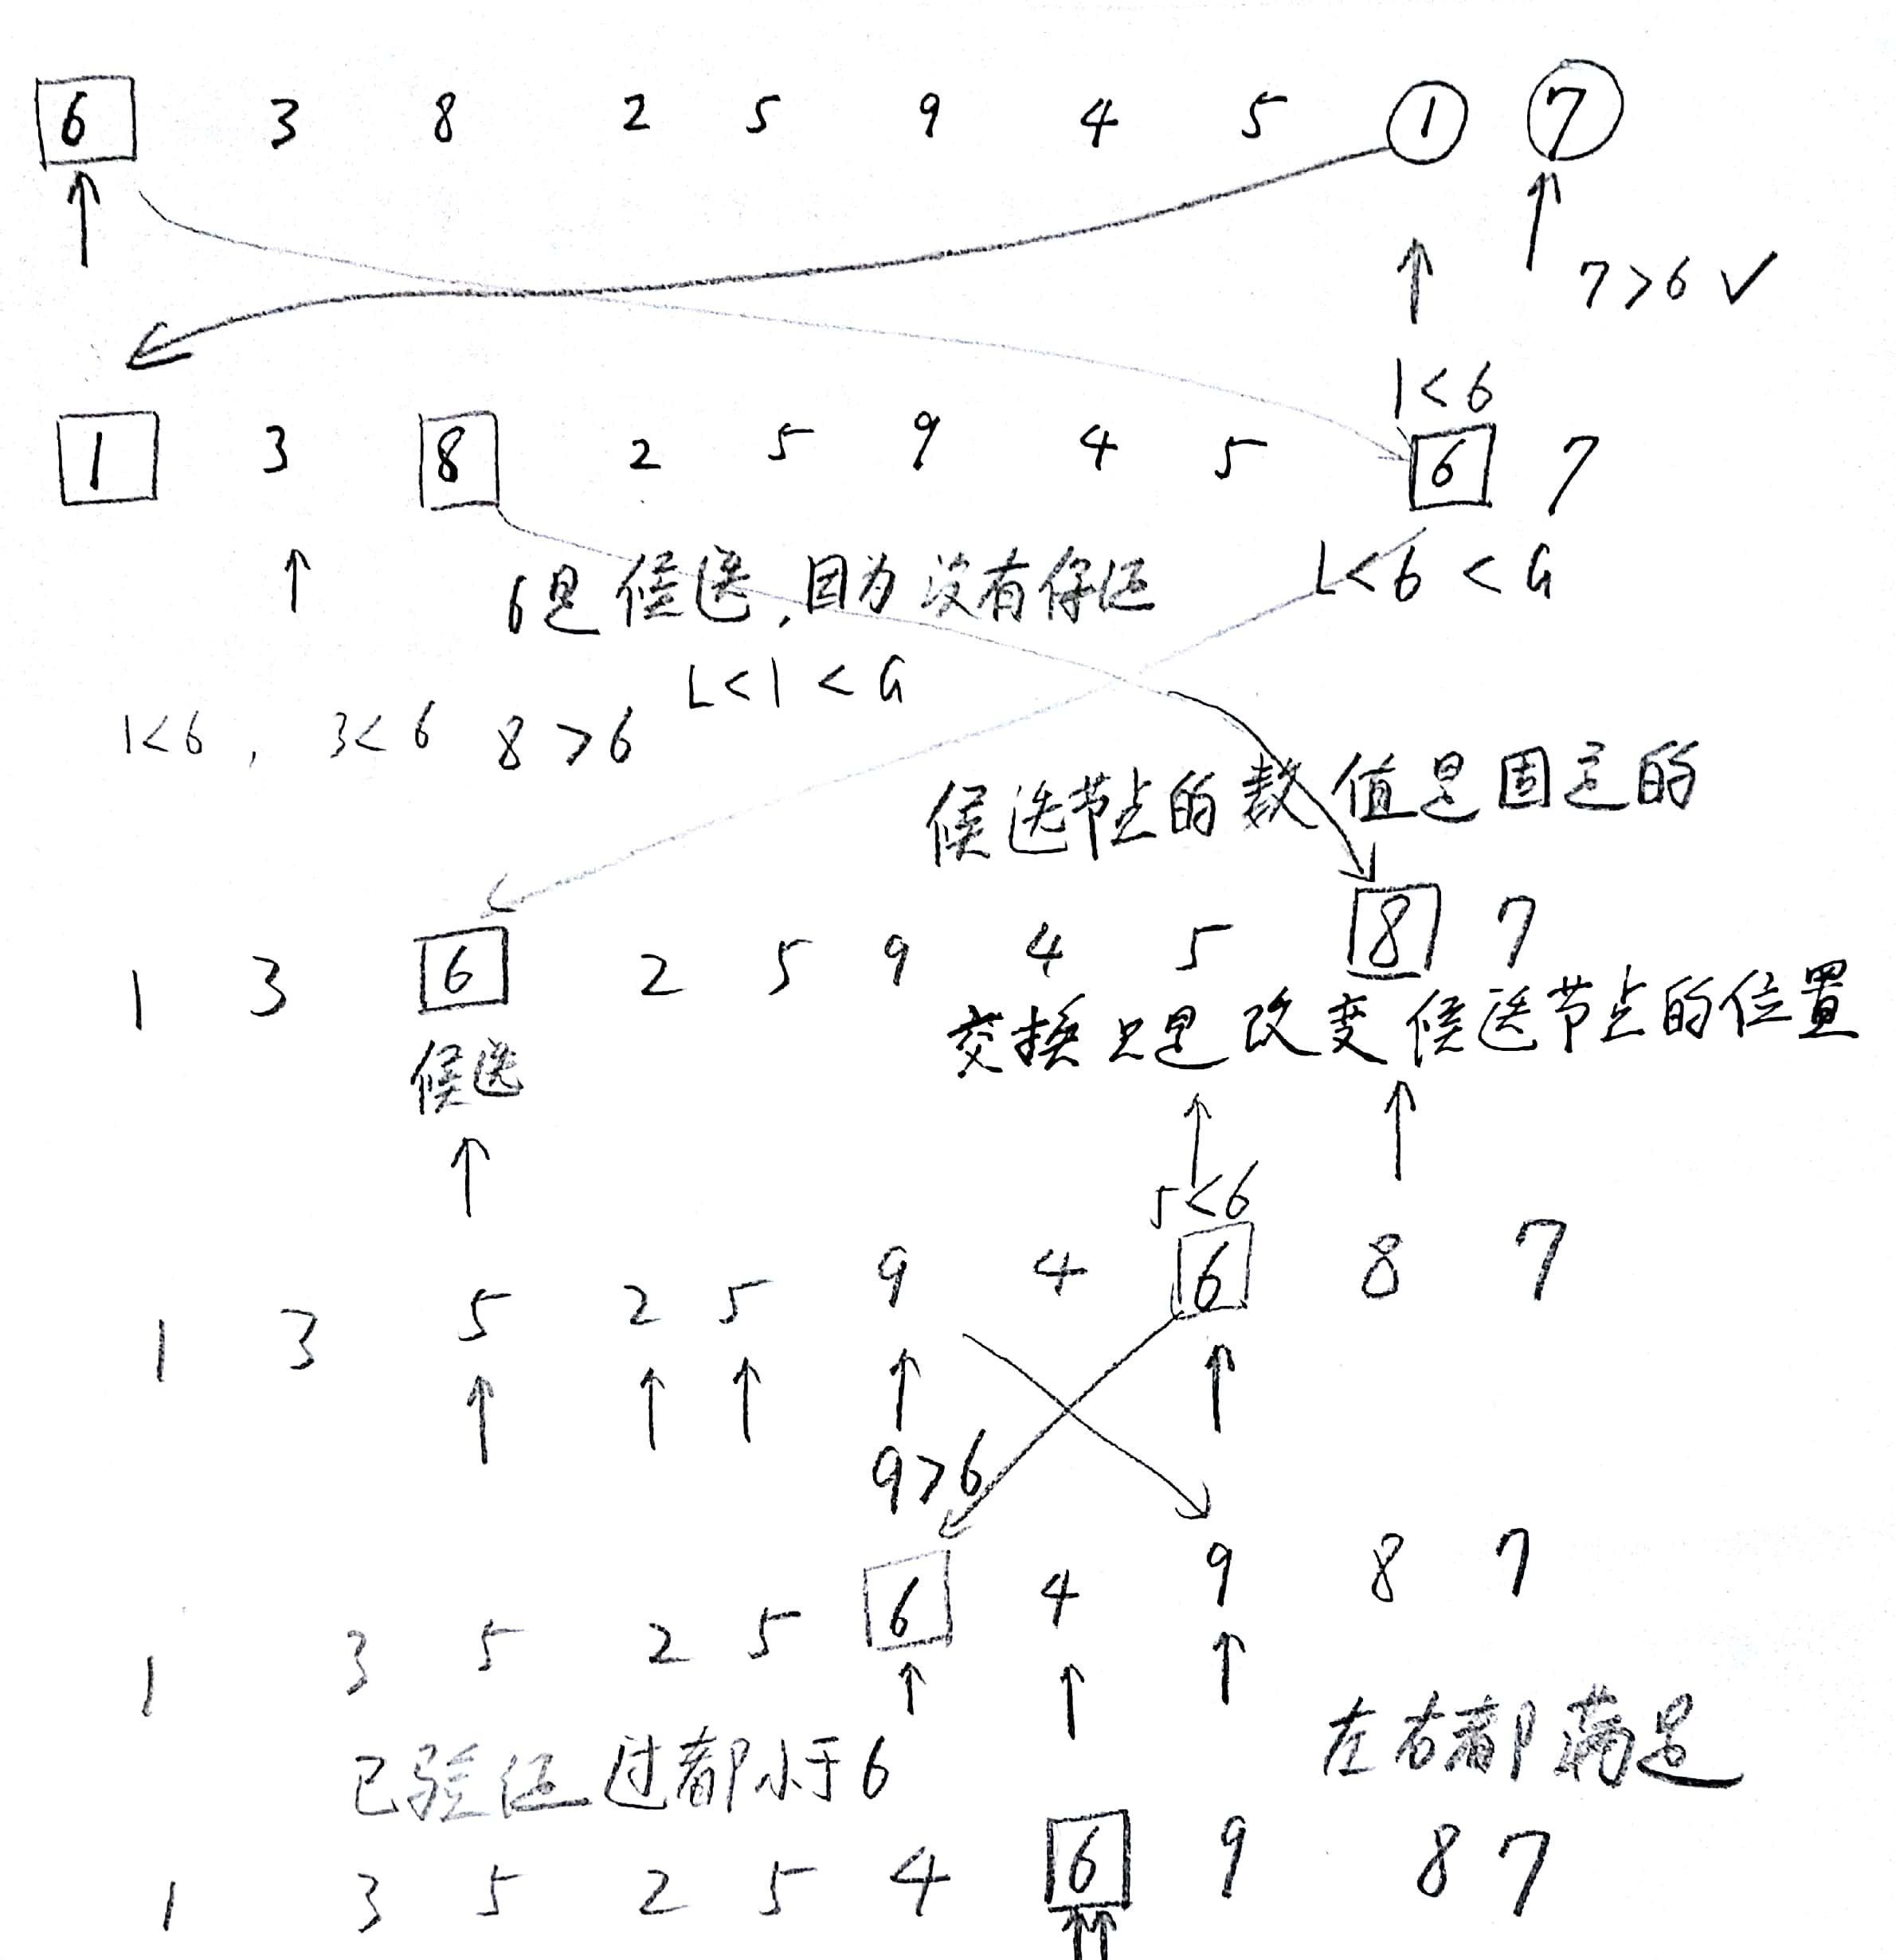 6 3 8 2 5 9 4 5 1 7
7>6 ✓
1<6
1 3 8 2 5 9 4 5 6 7
6是候选,因为没有保证 L<6<G
L<1<G
1<6, 3<6 8>6
候选节点的数值是固定的
1 3 6 2 5 9 4 5 8 7
交换只是改变候选节点的位置
候选
5<6
1 3 5 2 5 9 4 6 8 7
9>6
1 3 5 2 5 6 4 9 8 7
左右都满足
已验证过都小于6
1 3 5 2 5 4 6 9 8 7